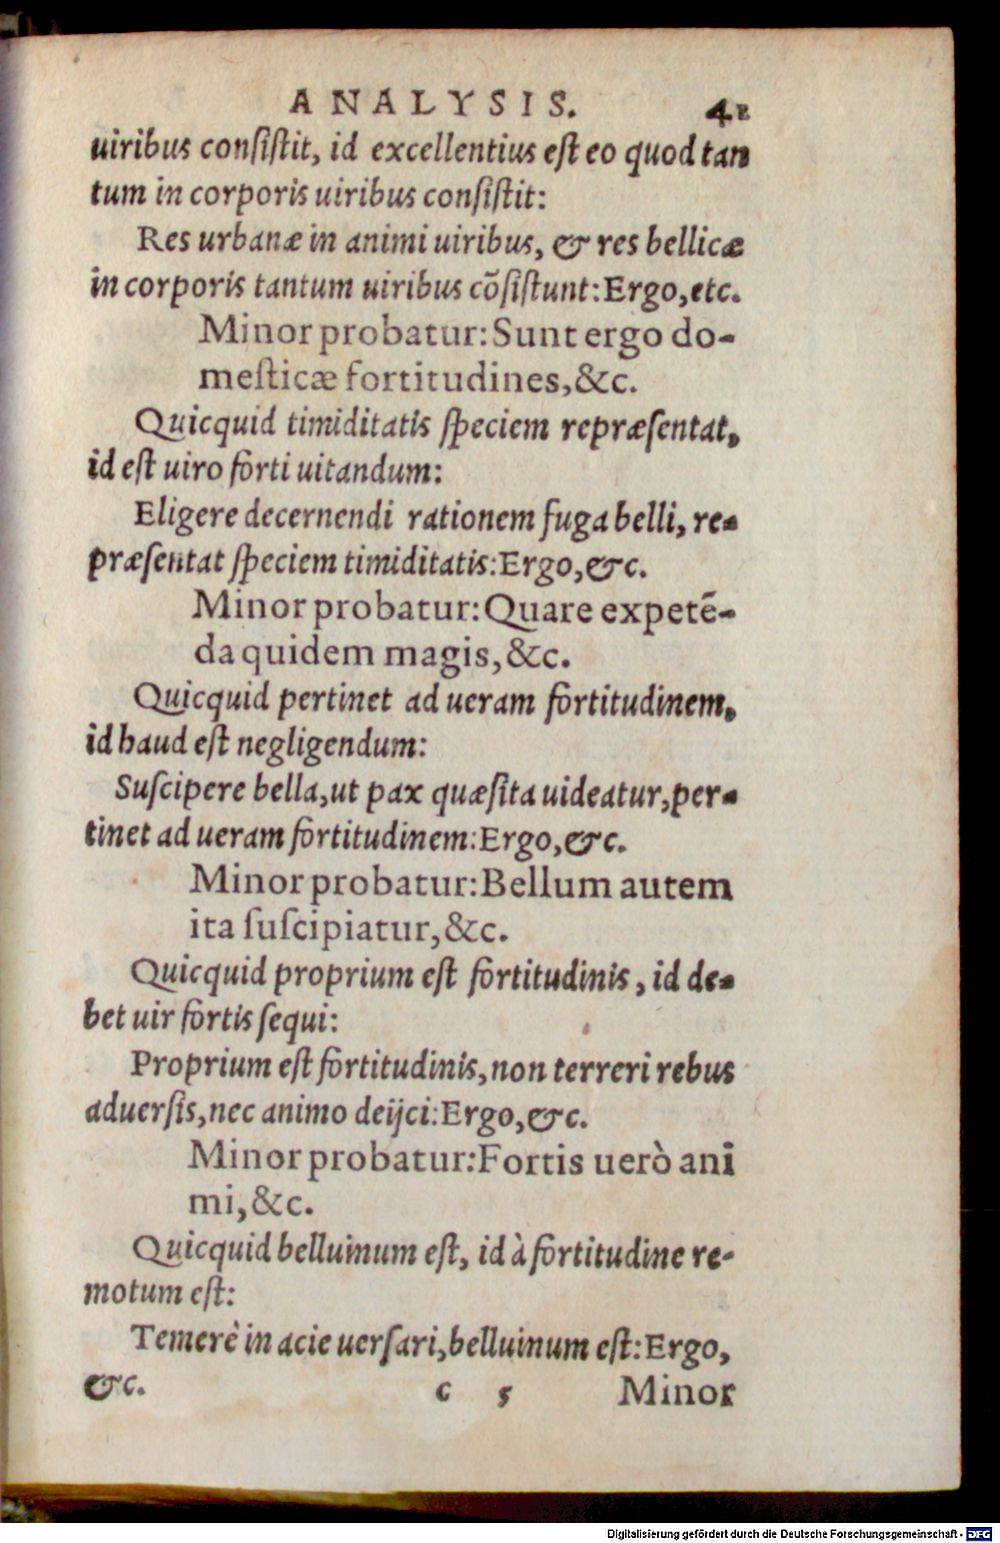 ANALYSIS. 41
uiribus conſiſtit, id excellentius eſt eo quod tan
tum in corporis uiribus conſiſtit:
Res urbanæ in animi uiribus, & res bellicæ
in corporis tantum uiribus cõſiſtunt: Ergo, etc.
Minor probatur: Sunt ergo do-
meſticæ fortitudines, &c.
Quicquid timiditatis ſpeciem repræſentat,
id eſt uiro forti uitandum:
Eligere decernendi rationem fuga belli, re-
præſentat ſpeciem timiditatis: Ergo, &c.
Minor probatur: Quare expetẽ-
da quidem magis, &c.
Quicquid pertinet ad ueram fortitudinem,
id haud eſt negligendum:
Suſcipere bella, ut pax quæſita uideatur, per-
tinet ad ueram fortitudinem: Ergo, &c.
Minor probatur: Bellum autem
ita ſuſcipiatur, &c.
Quicquid proprium eſt fortitudinis, id de-
bet uir fortis ſequi:
Proprium eſt fortitudinis, non terreri rebus
aduerſis, nec animo deijci: Ergo, &c.
Minor probatur: Fortis uerò ani
mi, &c.
Quicquid belluinum eſt, id à fortitudine re-
motum eſt:
Temerè in acie uerſari, belluinum eſt: Ergo,
&c. c 5 Minor
Digitalisierung gefördert durch die Deutsche Forschungsgemeinschaft - DFG